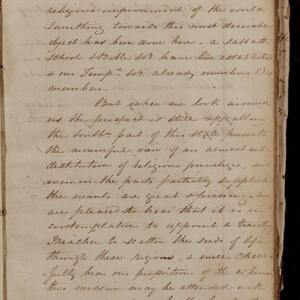 religious improvement of the world
Something towards this most desirable
object has been done here - a sabbath
School & Bible Soc have been established
& our Temp. Soc. already numbers 130
members.
But when we look around
us the prospect is still appalling
the south part of this state presents
the mournful view of an almost
destitution of religious privileges, and
even in the parts partially supplied
the wants are great & pressing. We
are pleased to hear that it is in
contemplation to appoint a
Preacher to scatter the seeds of life
through these regions, & will cheer
fully bear our proportion of the expense
this mission may be attended with